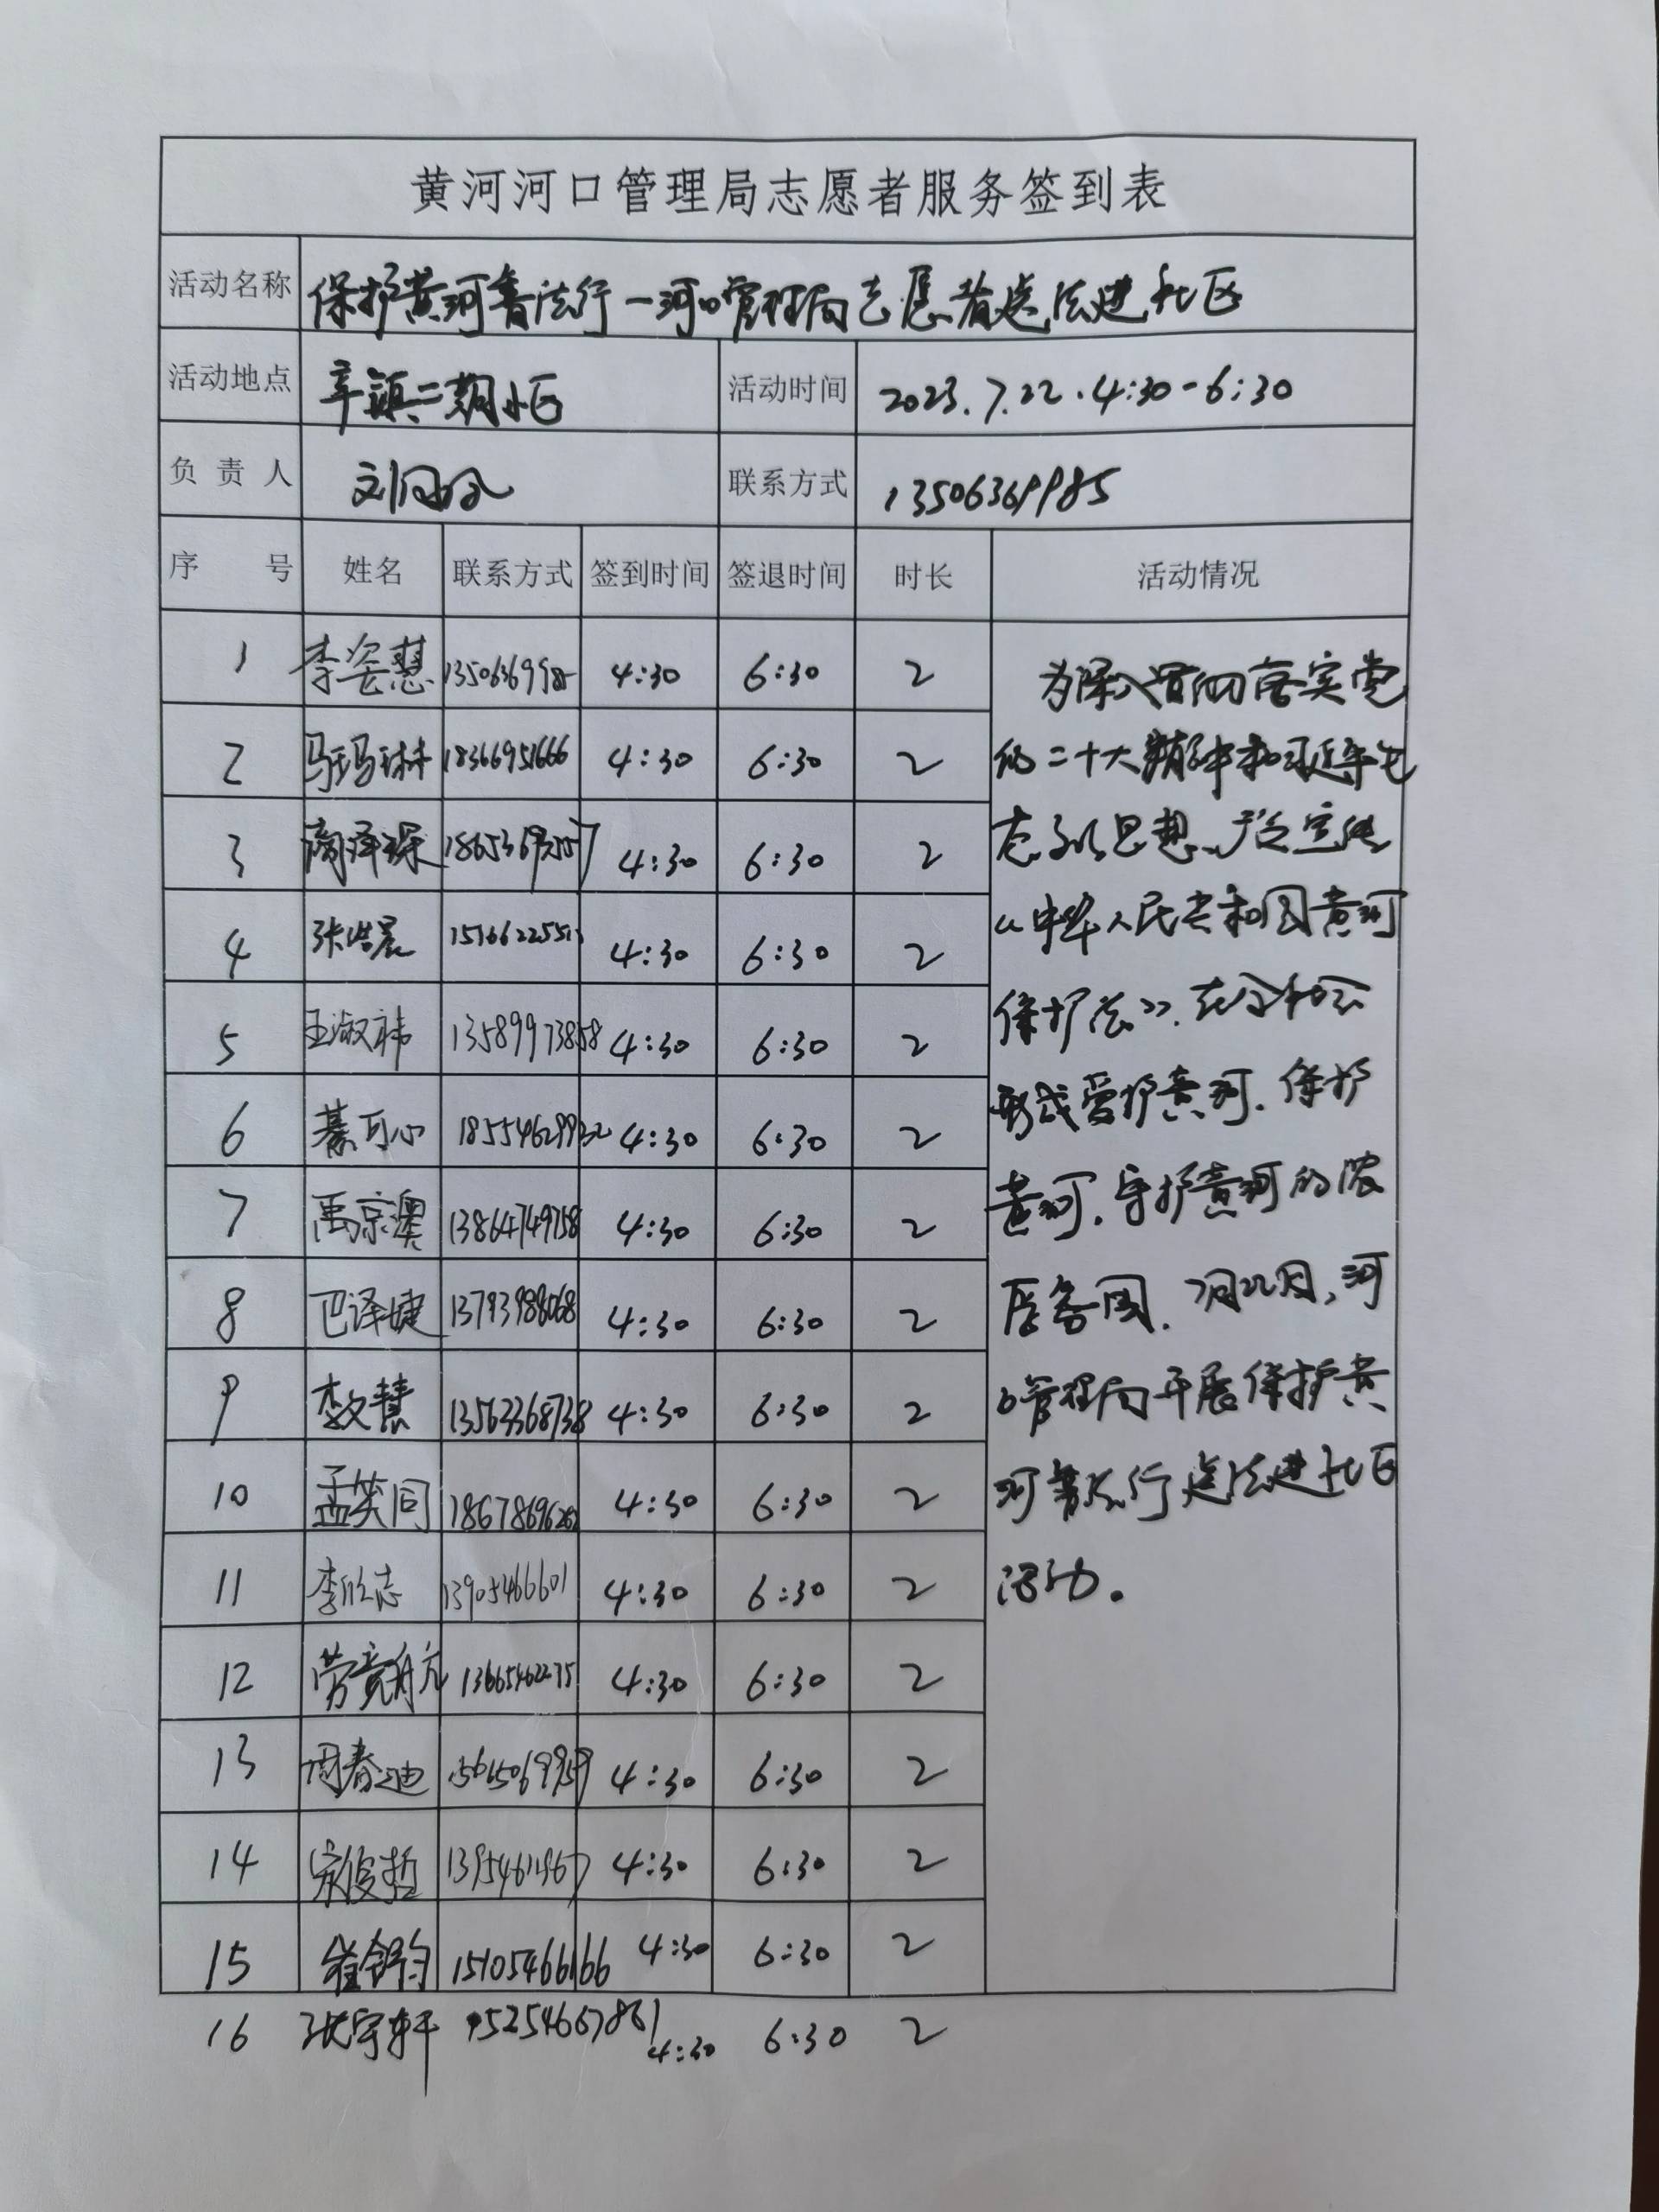 黄河河口管理局志愿者服务签到表
活动名称 保护黄河普法行—河口管理局志愿者送法进社区
活动地点 辛镇二期小区 活动时间 2023.7.22.4:30-6:30
负责人 联系方式 13506369985
序号 姓名 联系方式 签到时间 签退时间 时长 活动情况
1 李姿慧 4:30 6:30 2
2 马玛琳 18366951666 4:30 6:30 2
3 商泽琛 4:30 6:30 2
4 张浩晨 4:30 6:30 2
5 王淑祎 13589973858 4:30 6:30 2
6 綦可心 4:30 6:30 2
7 禹京澳 13864749758 4:30 6:30 2
8 巴泽婕 13793988068 4:30 6:30 2
9 李文慧 13563368738 4:30 6:30 2
10 孟笑同 4:30 6:30 2
11 李欣志 13905466601 4:30 6:30 2
12 劳竟航 13665462275 4:30 6:30 2
13 周春迪 15665069959 4:30 6:30 2
14 宋俊哲 4:30 6:30 2
15 崔舒钧 15105466166 4:30 6:30 2
16 张宇轩 15254667861 4:30 6:30 2
为深入贯彻落实党
的二十大精神和习近平生
态文明思想,广泛宣传
《中华人民共和国黄河
保护法》,在全社会
形成爱护黄河.保护
黄河.守护黄河的浓
厚氛围.7月22日,河
口管理局开展保护黄
河普法行送法进社区
活动。